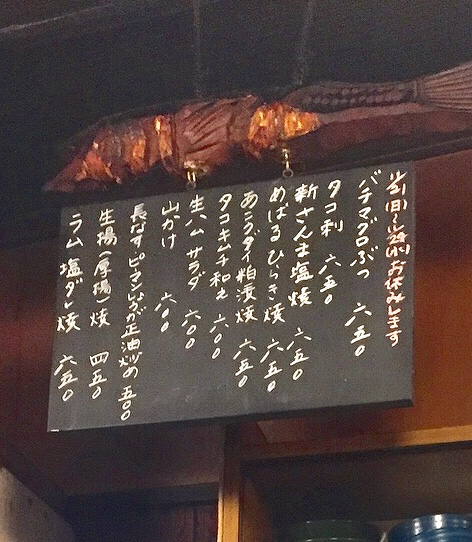 お休みします
バチマグロぶつ 六五〇
タコ刺 六五〇
新さんま塩焼 六五〇
めばるひらき焼 六五〇
あこうダイ粕漬焼 六五〇
タコキムチ和え 六〇〇
生ハムサラダ 六〇〇
山かけ 六〇〇
長なすピーマンしょうが正油炒め 五〇〇
生揚(厚揚)焼 四五〇
ラム塩ダレ焼 六五〇